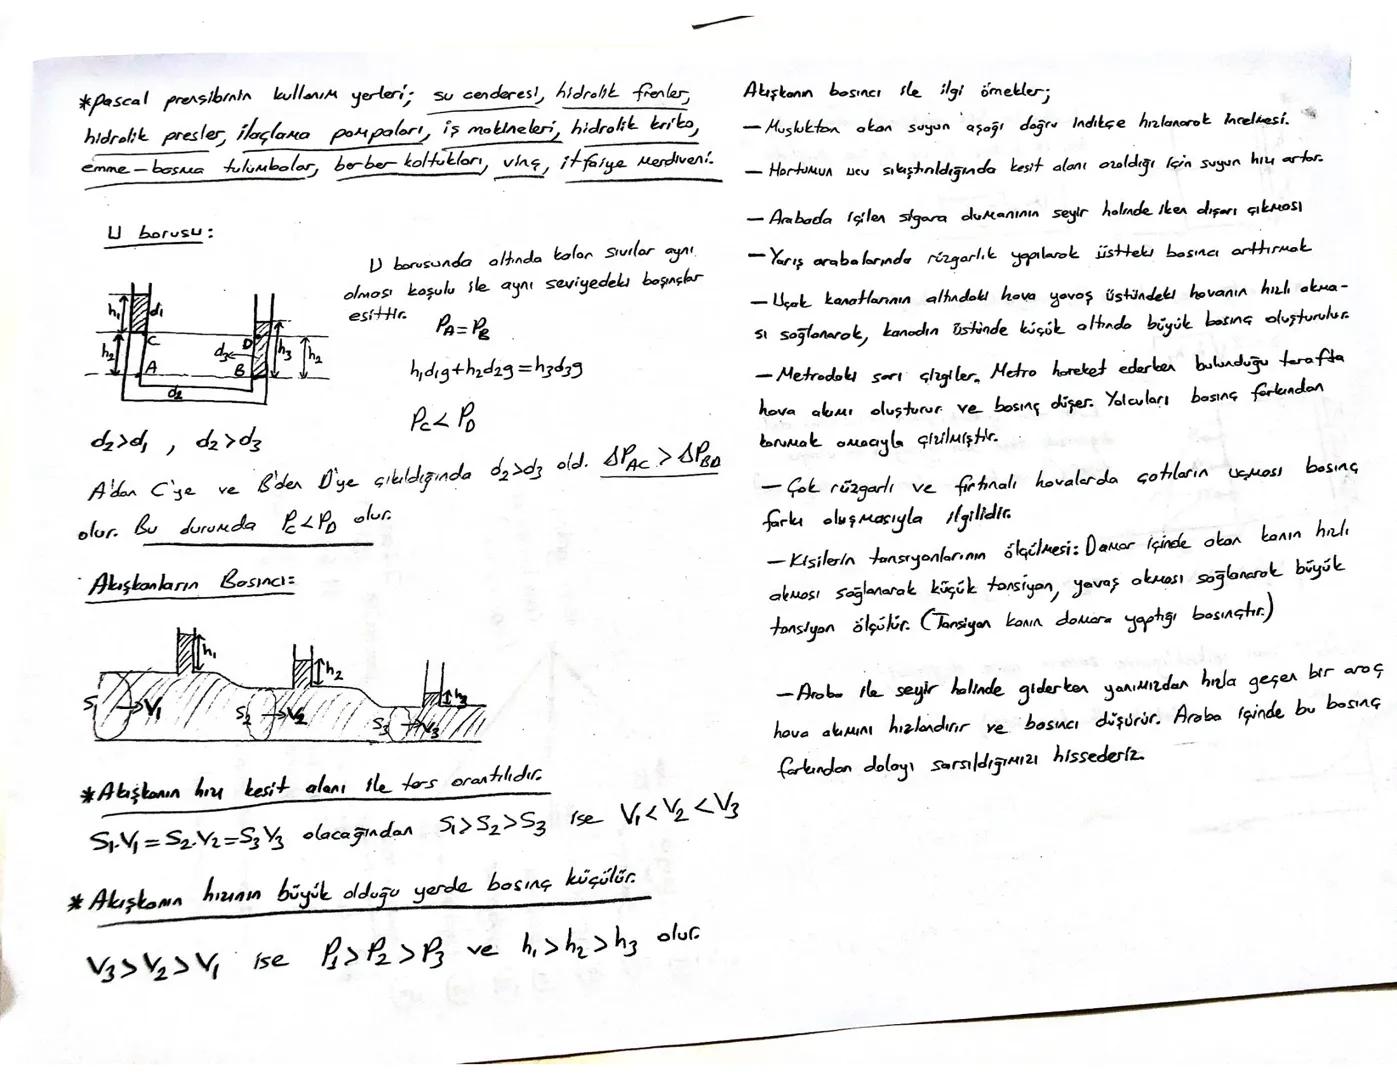 *Pascal prensibinin kullanım yerleri; su cenderesi, hidrolik frenler,
hidrolik presler, ilaçlama pompaları, iş makineleri, hidrolik kriko,
emme-basma tulumbalar, berber koltukları, vinç, itfaiye merdiveni.
U borusu:
U borusunda altında kalan sıvılar aynı
olması koşulu ile aynı seviyedeki basınçlar
eşittir.
h₁ d₁ C h₂ A d₂ d₃ D B h₃ h₂
P_A=P_B
h₁d₁g+h₂d₂g=h₃d₃g
P_C<P_D
d₂>d₁, d₂>d₃
A'dan C'ye ve B'den D'ye çıkıldığında d₂>d₃ old. ΔP_AC>ΔP_BD
olur. Bu durumda P_C<P_D olur.
Akışkanların Basıncı:
h₁ h₂ h₃
S₁ V₁ S₂ V₂ S₃ V₃
*Akışkanın hızı kesit alanı ile ters orantılıdır.
S₁.V₁=S₂.V₂=S₃V₃ olacağından S₁>S₂>S₃ ise V₁<V₂<V₃
*Akışkanın hızının büyük olduğu yerde basınç küçülür.
V₃>V₂>V₁ ise P₁>P₂>P₃ ve h₁>h₂>h₃ olur.
Akışkanın basıncı ile ilgi örnekler;
-Musluktan akan suyun aşağı doğru indikçe hızlanarak incelmesi.
-Hortumun ucu sıkıştırıldığında kesit alanı azaldığı için suyun hızı artar.
-Arabada içilen sigara dumanının seyir halinde iken dışarı çıkması
-Yarış arabalarında rüzgarlık yapılarak üstteki basıncı arttırmak
-Uçak kanatlarının altındaki hava yavaş üstündeki havanın hızlı akma-
sı sağlanarak, kanadın üstünde küçük altında büyük basınç oluşturulur.
-Metrodaki sarı çizgiler. Metro hareket ederken bulunduğu tarafta
hava akımı oluşturur ve basınç düşer. Yolcuları basınç farkından
korumak amacıyla çizilmiştir.
-Çok rüzgarlı ve fırtınalı havalarda çatıların uçması basınç
farkı oluşmasıyla ilgilidir.
-Kişilerin tansiyonlarının ölçülmesi: Damar içinde akan kanın hızlı
akması sağlanarak küçük tansiyon, yavaş akması sağlanarak büyük
tansiyon ölçülür. (Tansiyon kanın damara yaptığı basınçtır.)
-Araba ile seyir halinde giderken yanımızdan hızla geçen bir araç
hava akımını hızlandırır ve basıncı düşürür. Araba içinde bu basınç
farkından dolayı sarsıldığımızı hissederiz.